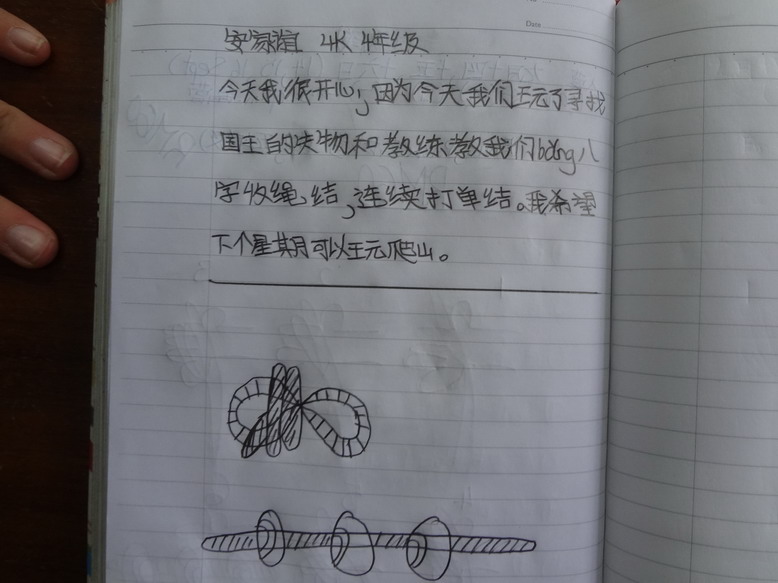 Date
安家谊 4K 4年级
今天我很开心，因为今天我们玩了寻找
国王的失物和教练教我们bǎng八
字收绳结，连续打单结。我希望
下个星期可以玩爬山。